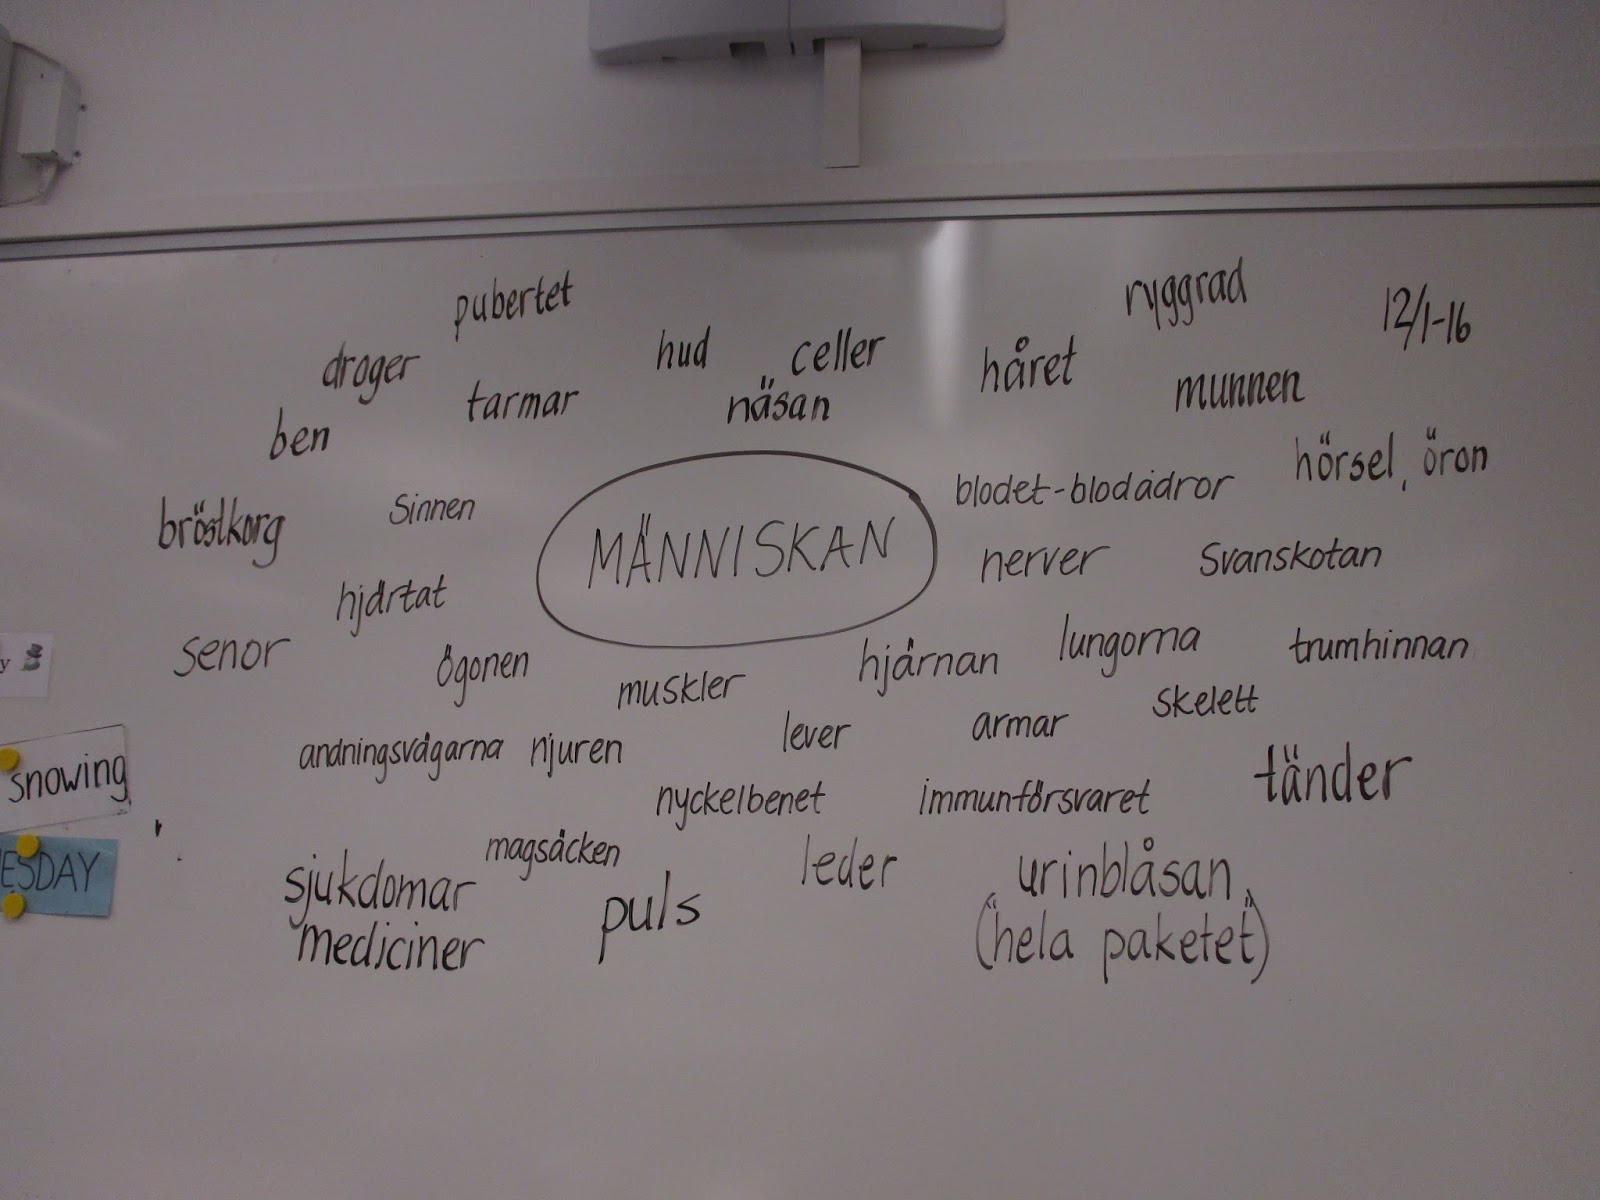 pubertet
ryggrad
12/1-16
droger
hud
celler
håret
munnen
tarmar
näsan
ben
hörsel, öron
bröstkorg
Sinnen
MÄNNISKAN
blodet-blodådror
nerver
Svanskotan
hjärtat
senor
ögonen
muskler
hjärnan
lungorna
trumhinnan
andningsvägarna
njuren
lever
armar
skelett
snowing
nyckelbenet
immunförsvaret
tänder
ESDAY
sjukdomar
mediciner
magsäcken
puls
leder
urinblåsan
("hela paketet")
y